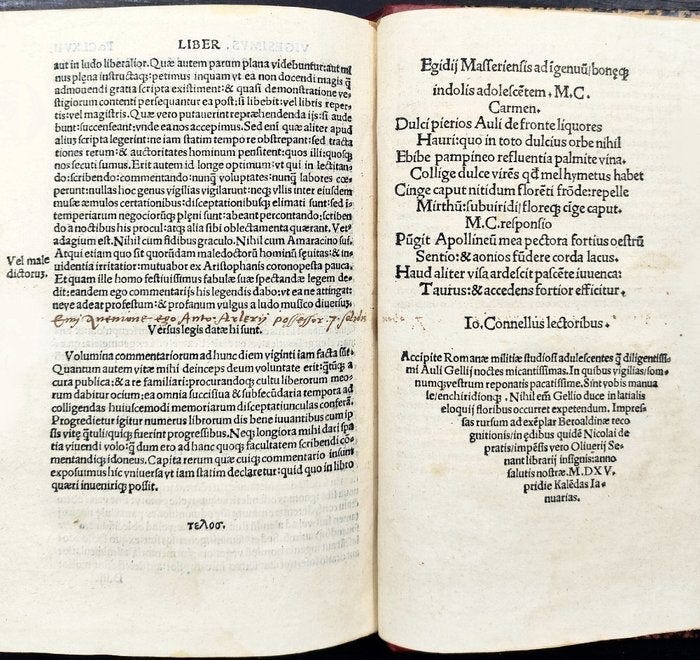 LIBER
aut in ludo liberalior. Quæ autem parum plana videbuntur: aut mi
nus plena instructaq;: petimus inquam vt ea non docendi magis q̃
admonendi gratia scripta existiment: & quasi demonstratione ve-
stigiorum contenti persequantur ea post: si libebit: vel libris reper
tis: vel magistris. Quæ vero putauerint repræhendenda ijs: si aude
bunt: succenseant: vnde ea nos accepimus. Sed em̃ quæ aliter apud
alios scripta legerint: ne iam statim tempore obstrepant: sed tracta
tiones rerum: & auctoritates hominum pensitent: quos illi: quosq;
nos secuti sumus. Erit autem id longe optimum: vt qui in lectitan
do: scribendo: commentando: nunq̃ voluptates: nunq̃ labores cœ
perunt: nullas hoc genus vigilias vigilarunt: neq; vllis inter eiusdem
musæ æmulos certationibus: disceptationibusq; elimati sunt: sed i
temperiarum negociorũq; plẽni sunt: abeant percontando; scriben
do a noctibus his procul: atq; alia sibi oblectamenta quærant. Vet
adagium est. Nihil cum fidibus graculo. Nihil cum Amaracino sui.
Atqui etiam quo sit quorũdam maledoctorũ hominũ sęuitas: & in
uidentia irritatior: mutuabor ex Aristophanis coronopesta pauca.
Et quam ille homo festiuissimus fabulæ suæ spectandæ legem de-
dit: eandem ego commentarijs his legendis dabo: vt ea ne attingat:
neve adeat profestum: & profanum vulgus a ludo musico diuersũ.
Vel male
dictorus.
Versus legis datæ hi sunt.
Volumina commentariorum ad hunc diem viginti iam facta sũt.
Quantum autem vitæ mihi deinceps deum voluntate erit: q̃tũq; a
cura publica: & a re familiari: procurandoq; cultu liberorum meo-
rum dabitur ocium: ea omnia succisiua & subsecũdaria tempora ad
colligendas huiuscemodi memoriarum disceptatiunculas conferã.
Progredietur igitur numerus librorum dis bene iuuantibus cum ip
sis vitę q̃tuli: quiq; fuerint progressibus. Neq; longiora mihi dari spa
tia viuendi volo: q̃ dum ero ad hanc quoq; facultatem scribendi cõ-
mentandiq; idoneus. Capita rerum quæ cuiq; commentario insunt
exposuimus hic vniuersa vt iam statim declaretur: quid quo in libro
quæri inueniriq; possit.
τελος.
Egidij Masseriensis ad ĩgenuũ/bonęq;
indolis adolescẽtem. M.C.
Carmen.
Dulci pierios Auli de fronte liquores
Hauri: quo in toto dulcius orbe nihil
Ebibe pampineo refluentia palmite vina.
Collige dulce virẽs qđ mel hymetus habet
Cinge caput nitidum florẽti frõde: repelle
Mirthũ: subuiridi/floreq; cĩge caput.
M.C. responsio
Pũgit Apollineũ mea pectora fortius oestrũ
Sentio: & aonios fũdere corda lacus.
Haud aliter visa ardescit pascẽte iuuenca:
Taurus: & accedens fortior efficitur.
Io. Connellus lectoribus.
Accipite Romanæ militiæ studiosi adulescentes q̃ diligentissi-
mi Auli Gellij noctes micantissimas. In quibus vigilias/som-
numq; vestrum reponatis pacatissime. Sint vobis manua
le/enchiridionq;. Nihil em̃ Gellio duce in latialis
eloquij floribus occurret expetendum. Impres
sas rursum ad exẽplar Beroaldinæ reco
gnitionis/in ędibus quidẽ Nicolai de
pratis/impẽsis vero Oliuerij Se
nant librarij insignis: anno
salutis nostræ. M.D.XV.
pridie Kalẽdas Ia-
nuarias.